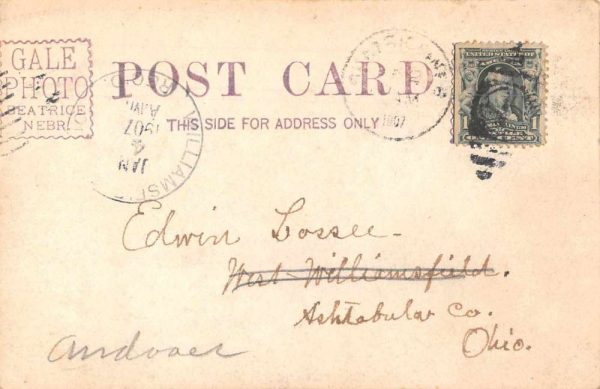 GALE
PHOTO
BEATRICE
NEBR.
POST CARD
THIS SIDE FOR ADDRESS ONLY
WILLIAMSF
JAN
4
A.M.
1907
UNITED STATES OF
1
1
ONE CENT
Edwin Lossee
West Williamsfield.
Ashtabular Co.
Ohio.
Andover